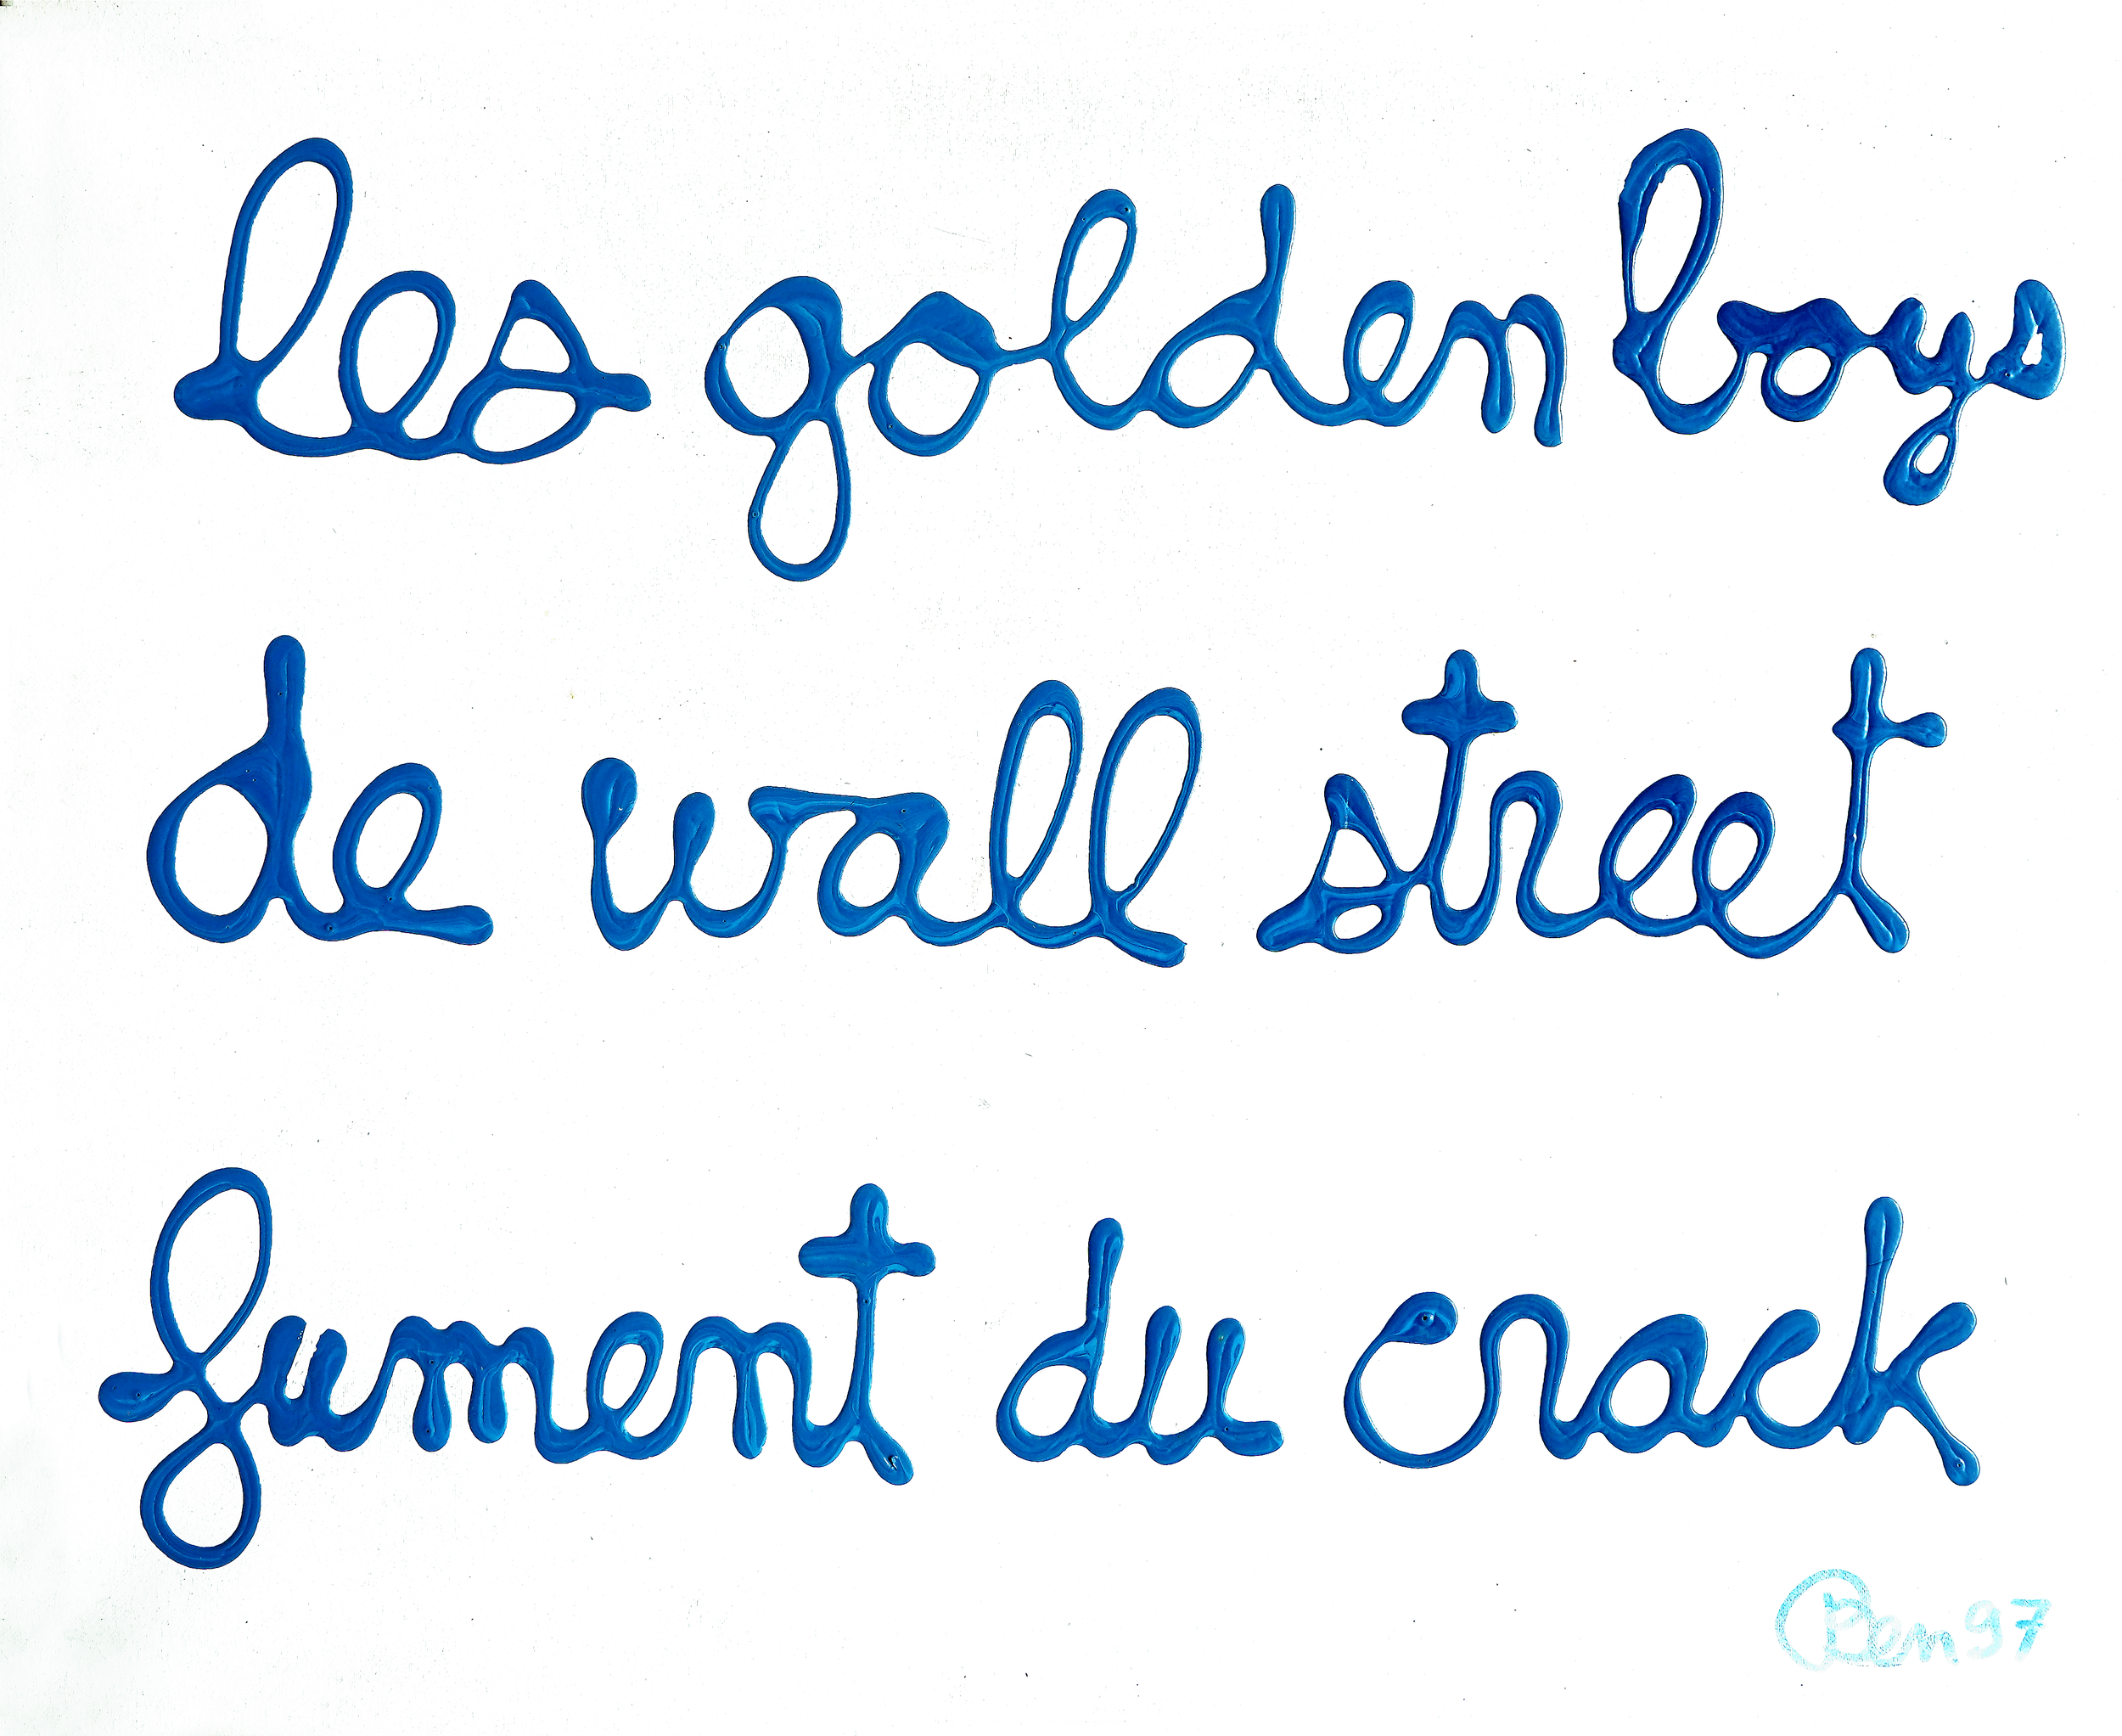 les golden boys
de wall street
fument du crack
Ben 97